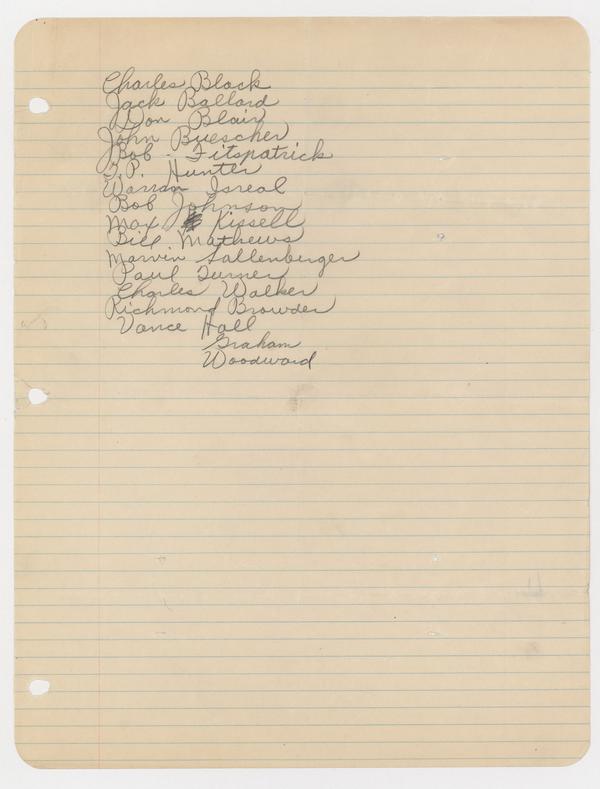 Charles Black
Jack Ballard
Don Blair
John Buescher
Bob - Fitspatrick
T.P. Hunter
Warran Isreal
Bob Johnson
Max Kissell
Bill Mathews
Marvin Sallenberger
Paul Turner
Charles Walker
Richmond Browder
Vance Hall
Graham
Woodward